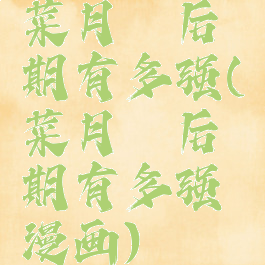 菜月 后
期有多强(
菜月 后
期有多强
漫画)